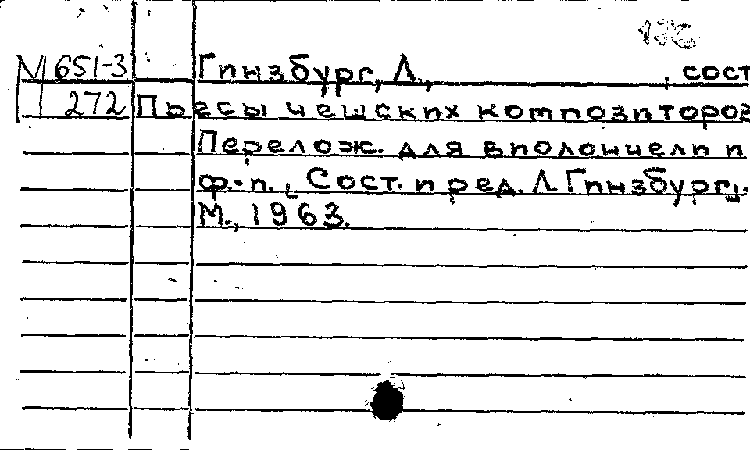 М 651-3 Гинзбург, Л., , сост
272 Пьесы чешских композиторов
Перелож. для виолончели и
ф.-п., Сост. и ред. Л. Гинзбург.
М., 1963.